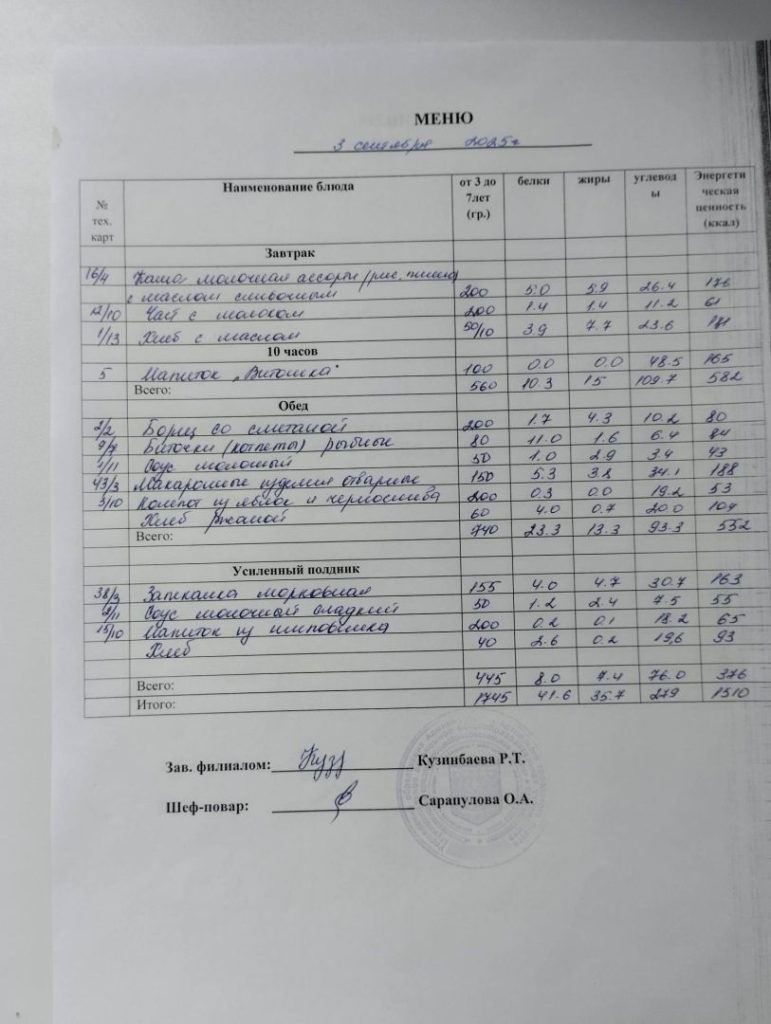 МЕНЮ
3 сентября 2025г
№ тех. карт Наименование блюда от 3 до 7лет (гр.) белки жиры углеводы Энергетическая ценность (ккал)
Завтрак
16/4 Каша молочная ассорти (рис, пшено)
с маслом сливочным 200 5.0 5.9 26.4 176
12/10 Чай с молоком 200 1.4 1.4 11.2 61
1/13 Хлеб с маслом 50/10 3.9 7.7 23.6
10 часов
5 Напиток „Витошка" 100 0.0 0.0 48.5 165
Всего: 560 10.3 15 109.7 582
Обед
2/2 Борщ со сметаной 200 1.7 4.3 10.2 80
9/7 Биточки (котлеты) рыбные 80 11.0 1.6 6.4 84
1/11 Соус молочный 50 1.0 2.9 3.4 43
43/3 Макаронные изделия отварные 150 5.3 3.8 34.1 188
5/10 Компот из яблок и чернослива 200 0.3 0.0 19.2 53
Хлеб ржаной 60 4.0 0.7 20.0 104
Всего: 740 23.3 13.3 93.3 552
Усиленный полдник
38/3 Запеканка морковная 155 4.0 4.7 30.7 163
Соус молочный сладкий 50 1.2 2.4 7.5 55
15/10 Напиток из шиповника 200 0.2 0.1 18.2 65
Хлеб 40 2.6 0.2 19,6 93
Всего: 445 8.0 7.4 76.0 376
Итого: 1745 41.6 35.7 279 1510
Зав. филиалом: Кузинбаева Р.Т.
Шеф-повар: Сарапулова О.А.